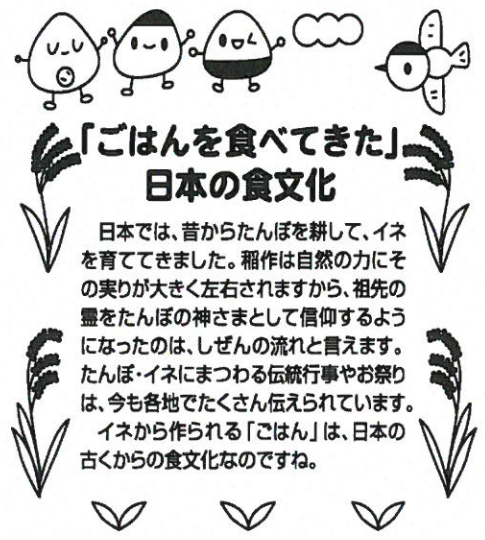 「ごはんを食べてきた」
日本の食文化
日本では、昔からたんぼを耕して、イネ
を育ててきました。稲作は自然の力にそ
の実りが大きく左右されますから、祖先の
霊をたんぼの神さまとして信仰するよう
になったのは、しぜんの流れと言えます。
たんぼ・イネにまつわる伝統行事やお祭り
は、今も各地でたくさん伝えられています。
イネから作られる「ごはん」は、日本の
古くからの食文化なのですね。